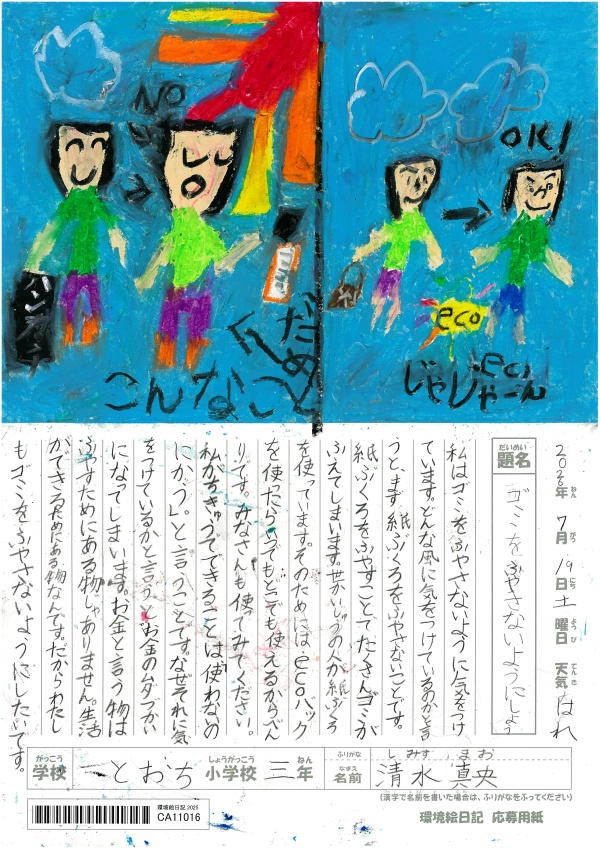 NO
ハンカチ
だめ
こんなこと
OK!
eco
eco
じゃじゃーん
2025年 7月 19日 土曜日 天気 はれ
ねん がつ にち ようび てんき
だいめい
題名 ゴミをふやさないようにしよう
私はゴミをふやさないように気をつけ
ています。どんな風に気をつけているのかと言
うと、まず紙ぶくろをふやさないことです。
紙ぶくろをふやすことでたくさんゴミが
ふえてしまいます。せかいじゅうの人が紙ぶくろ
を使っています。そのためにはecoバック
を使ったらいつでもどこでも使えるからべん
りです。みなさんも使ってみてください。
私がちきゅうでできることは「使わないの
にかう。」と言うことです。なぜそれに気
をつけているかと言うとお金のムダづかい
になってしまいます。お金と言う物は
ふやすためにある物じゃありません。生活
ができるためにある物なんです。だからわたし
もゴミをふやさないようにしたいです。
がっこう しょうがっこう ねん ふりがな しみず まお
学校 一とおち 小学校 三年 なまえ 名前 清水 真央
(漢字で名前を書いた場合は、ふりがなをふってください)
環境絵日記 2025
CA11016
環境絵日記 応募用紙